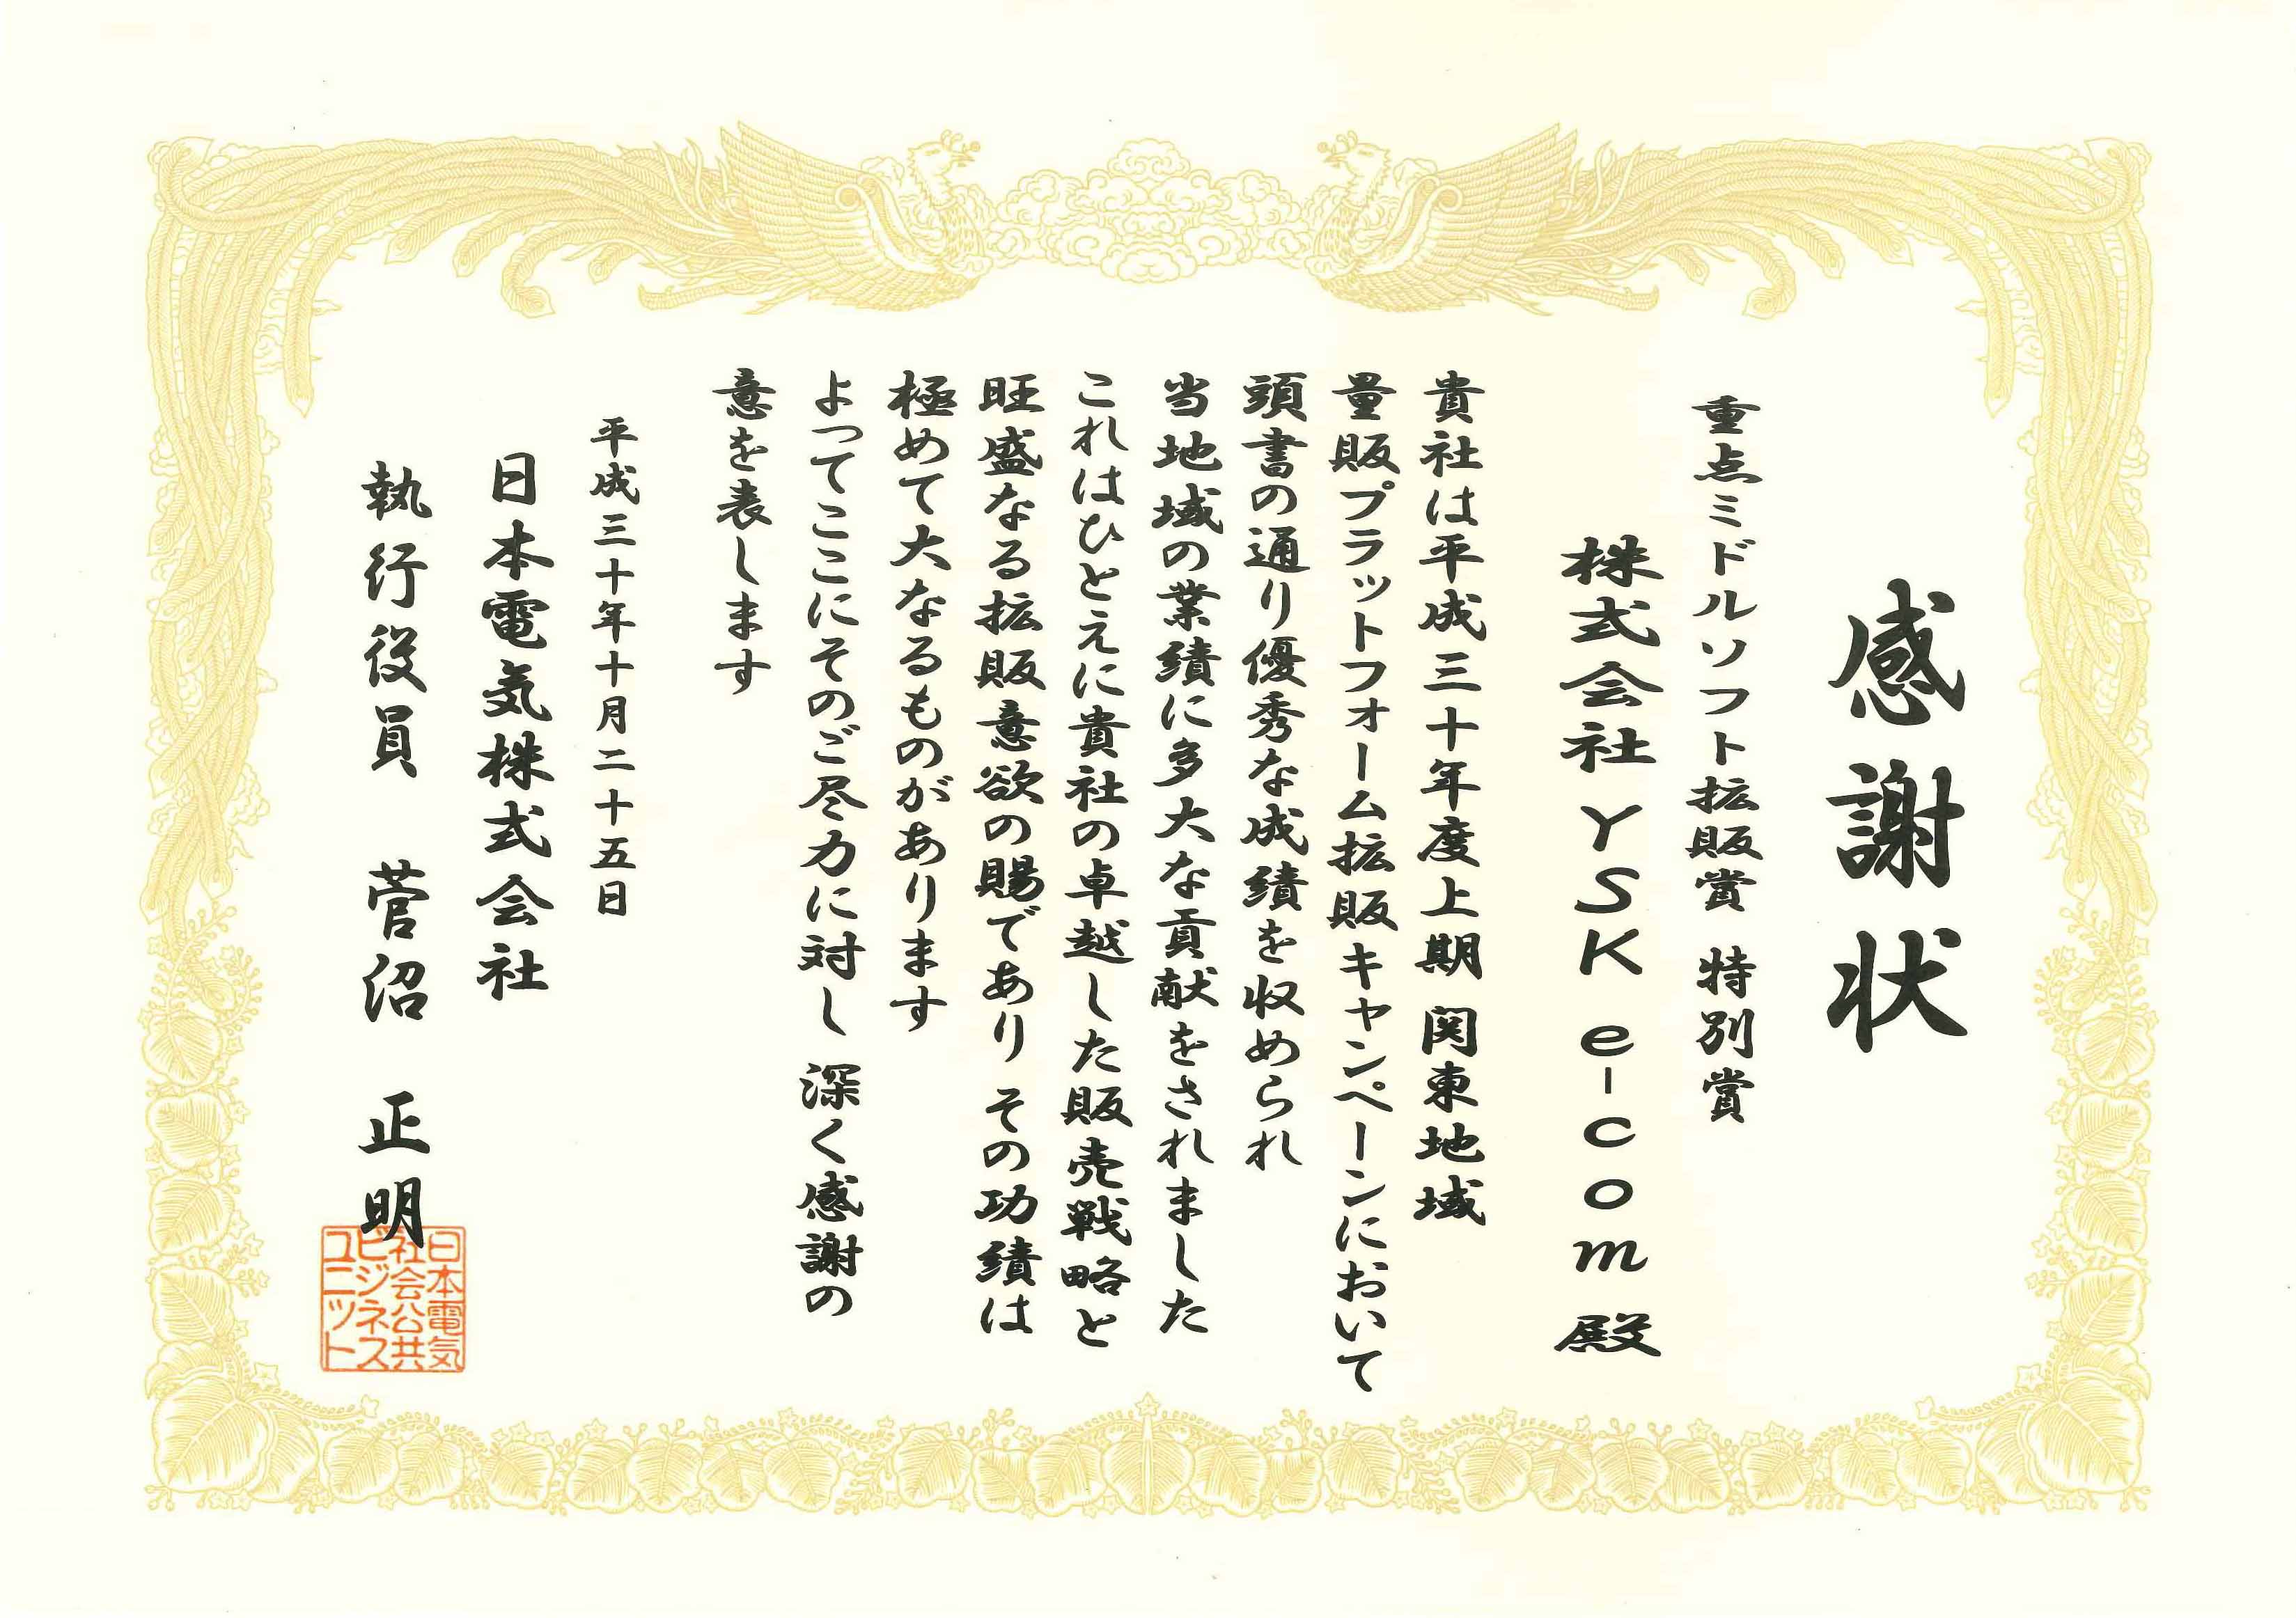 感謝状
重点ミドルソフト拡販賞 特別賞
株式会社YSK e-com 殿
貴社は平成三十年度上期 関東地域
量販プラットフォーム拡販キャンペーンにおいて
頭書の通り優秀な成績を収められ
当地域の業績に多大な貢献をされました
これはひとえに貴社の卓越した販売戦略と
旺盛なる拡販意欲の賜であり その功績は
極めて大なるものがあります
よってここにそのご尽力に対し 深く感謝の
意を表します
平成三十年十月二十五日
日本電気株式会社
執行役員 菅沼 正明
日本電気
社会公共
ビジネス
ユニット